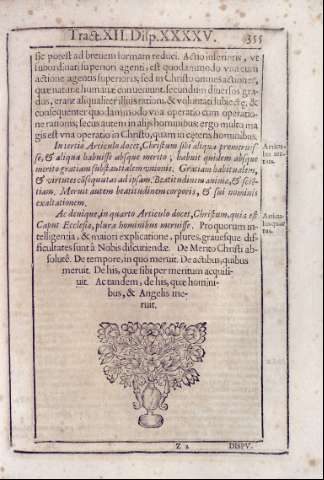 Tract. XII. Disp. XXXXV. 355
sic potest ad breuem formam reduci. Actio inferioris, vt
subordinati superiori agenti, est quodammodo vna cum
actione agentis superioris; sed in Christo omnes actiones,
quæ naturæ humanæ conueniunt secundum diuersos gra-
dus, erant aliqualiter illius rationi, & voluntati subiectæ, &
consequenter quodammodo vna operatio cum operatio-
ne rationis; secus autem in alijs hominibus: ergo multo ma
gis est vna operatio in Christo, quam in cæteris hominibus.
In tertio Articulo docet, Christum sibi aliqua promeruis-
se, & aliqua habuisse absque merito; habuit quidem absque
merito gratiam substantialem vnionis. Gratiam habitualem,
& virtutes consequutas ad ipsam. Beatitudinem animæ, & scien-
tiam. Meruit autem beatitudinem corporis, & sui nominis
exaltationem.
Ac denique, in quarto Articulo docet, Christum, quia est
Caput Ecclesiæ, plura hominibus meruisse. Pro quorum in-
telligentia, & maiori explicatione, plures, grauesque dif-
ficultates sunt à Nobis discutiendæ. De Merito Christi ab-
solutè. De tempore, in quo meruit. De actibus, quibus
meruit. De his, quæ sibi per meritum acquisi-
uit. Ac tandem, de his, quæ homini-
bus, & Angelis me-
ruit.
Z 2 DISPV.